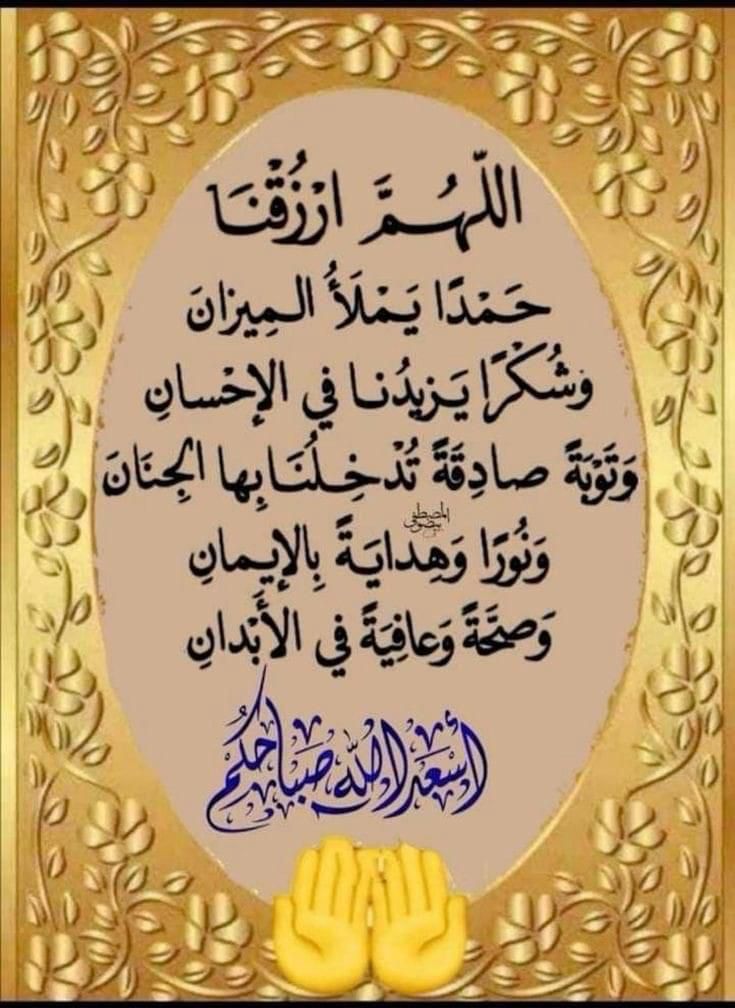 اللّهُمَّ ارْزُقْنَا
حَمْدًا يَمْلَأُ الـمِيزانَ
وَشُكْرًا يَزِيدُنا في الإحْسانِ
وَتَوْبَةً صادِقَةً تُدْخِلُنَا بِها الجِنَانَ
وَنُورًا وَهِدايَةً بِالإيمانِ
وَصحَّةً وَعافِيَةً في الأَبْدانِ
أسعد الله صباحكم